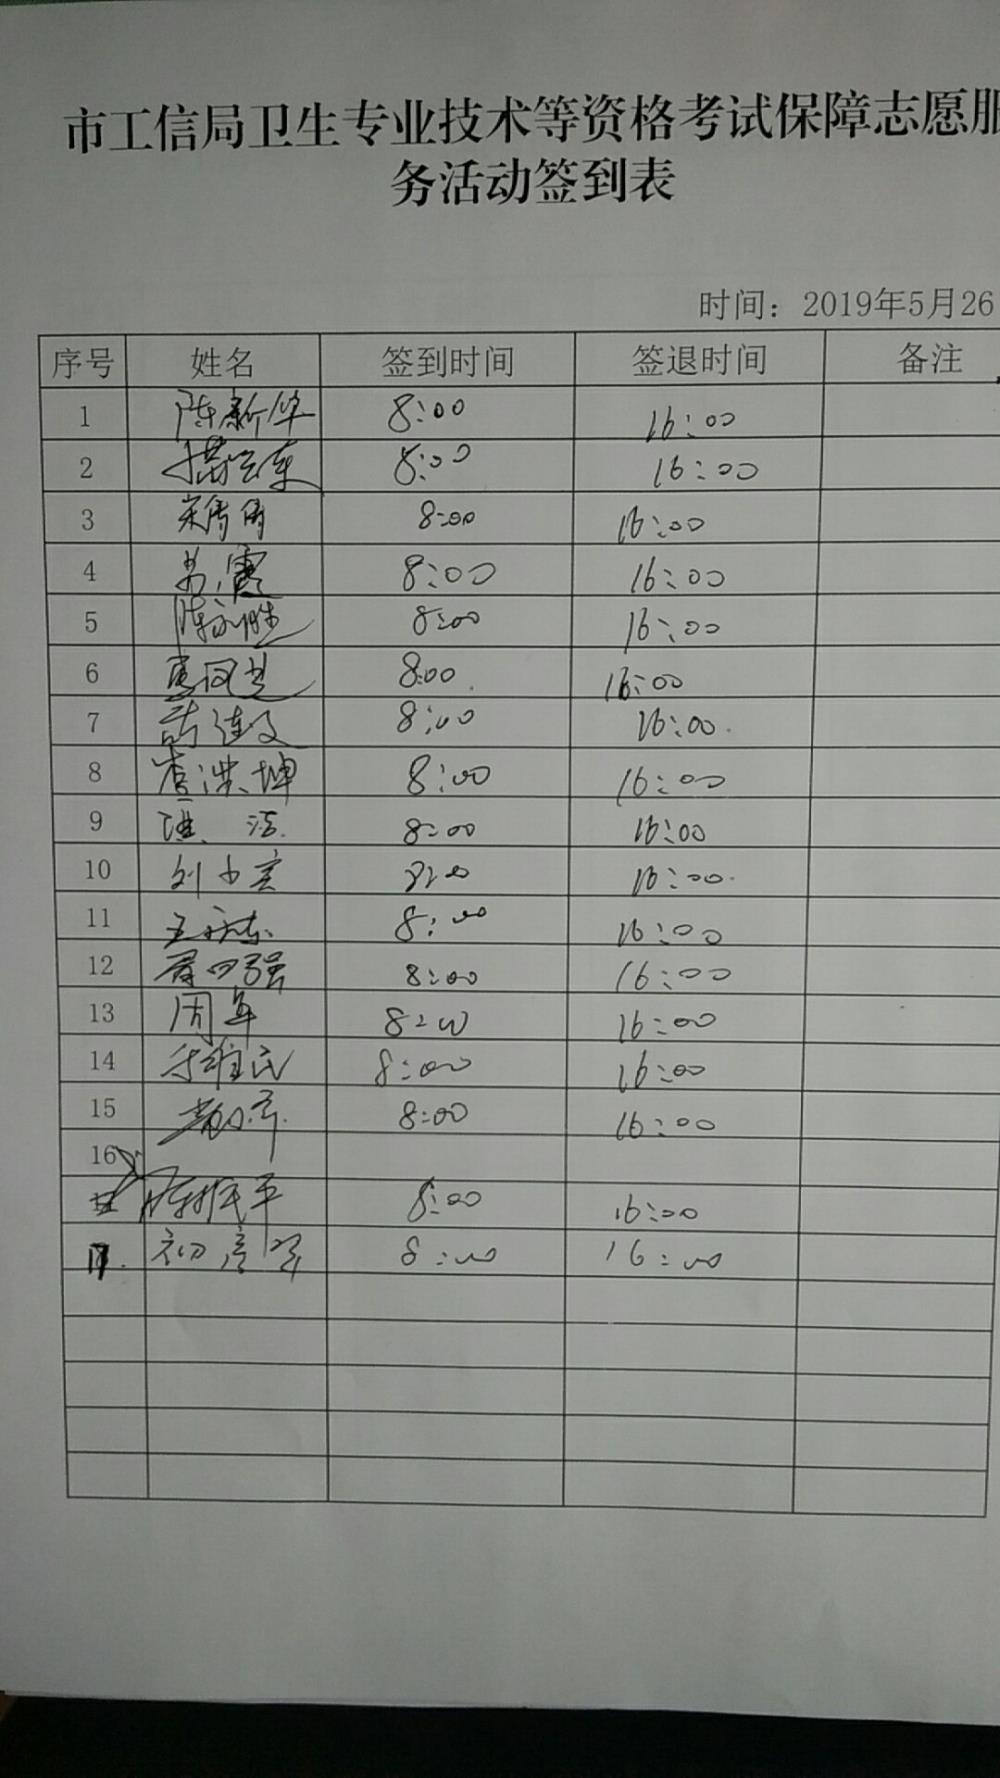 市工信局卫生专业技术等资格考试保障志愿服
务活动签到表
时间：2019年5月26
序号 姓名 签到时间 签退时间 备注
1 陈新华 8:00 16:00
2 8:00 16:00
3 宋倩倩 8:00 16:00
4 苏霞 8:00 16:00
5 陈永胜 8:00 16:00
6 8:00 16:00
7 8:00 16:00
8 8:00 16:00
9 8:00 16:00
10 刘 8:00 16:00
11 王 8:00 16:00
12 强 8:00 16:00
13 周军 8:00 16:00
14 维民 8:00 16:00
15 8:00 16:00
16
平 8:00 16:00
17. 初 8:00 16:00